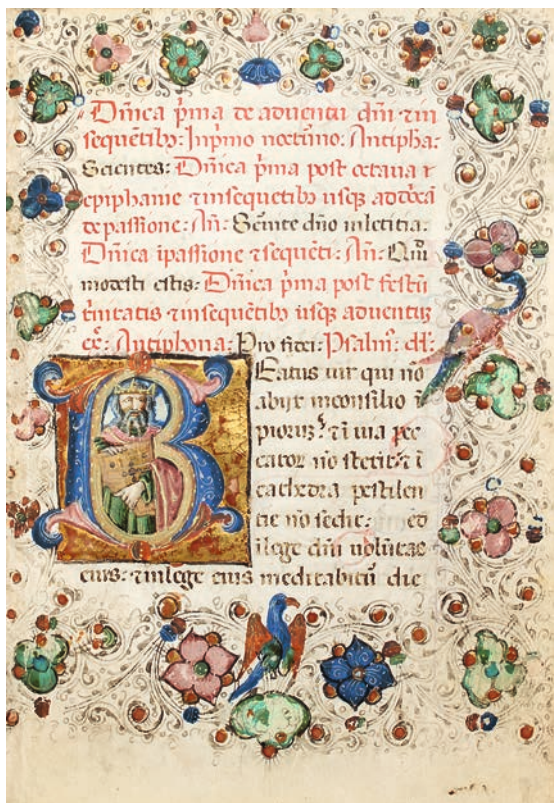 Dñica p̄ma de aduentu dñi ⁊ in
sequētibꝫ: In p̄mo nocturno: Antipha:
Scientes: Dñica p̄ma post octaua
epiphanie ⁊ insequētibꝫ usqꝫ ad
de passione: Añ: Seruite dño in leticia:
Dñica i passione ⁊ sequēti: Añ:
modesti estis: Dñica p̄ma post festū
t̄nitatis ⁊ insequētibꝫ usqꝫ aduentū
Antiphona: Pro fidei: Psalmꝰ:
Beatus uir qui nō
abijt in consilio ī
pioruꝫ: ⁊ ī uia pec
cator nō stetit: ⁊ ī
cathedra pestilen
tie nō sedit: ed
ī lege dñi uoluntas
eius: ⁊ in lege eius meditabitū die